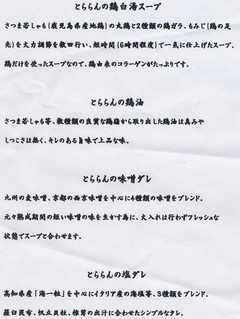 とららんの鶏白湯スープ
さつま若しゃも(鹿児島県産地鶏)の丸鶏と2種類の鶏ガラ、もみじ(鶏の足
先)を火力調節を数回行い、短時間(6時間程度)で一気に仕上げたスープ。
鶏だけを使ったスープなので、鶏由来のコラーゲンがたっぷりです。
とららんの鶏油
さつま若しゃも等、数種類の良質な鶏脂から取り出した鶏油は臭みや
しつこさは無く、キレのある旨味で上品な味。
とららんの味噌ダレ
九州の麦味噌、京都の西京味噌を中心に4種類の味噌をブレンド。
元々熟成期間の短い味噌の味を生かす為に、火入れは行わずフレッシュな
状態でスープと合わせます。
とららんの塩ダレ
高知県産「海一粒」を中心にイタリア産の海塩等、3種類をブレンド。
羅臼昆布、帆立貝柱、椎茸の出汁に合わせたシンプルなタレ。